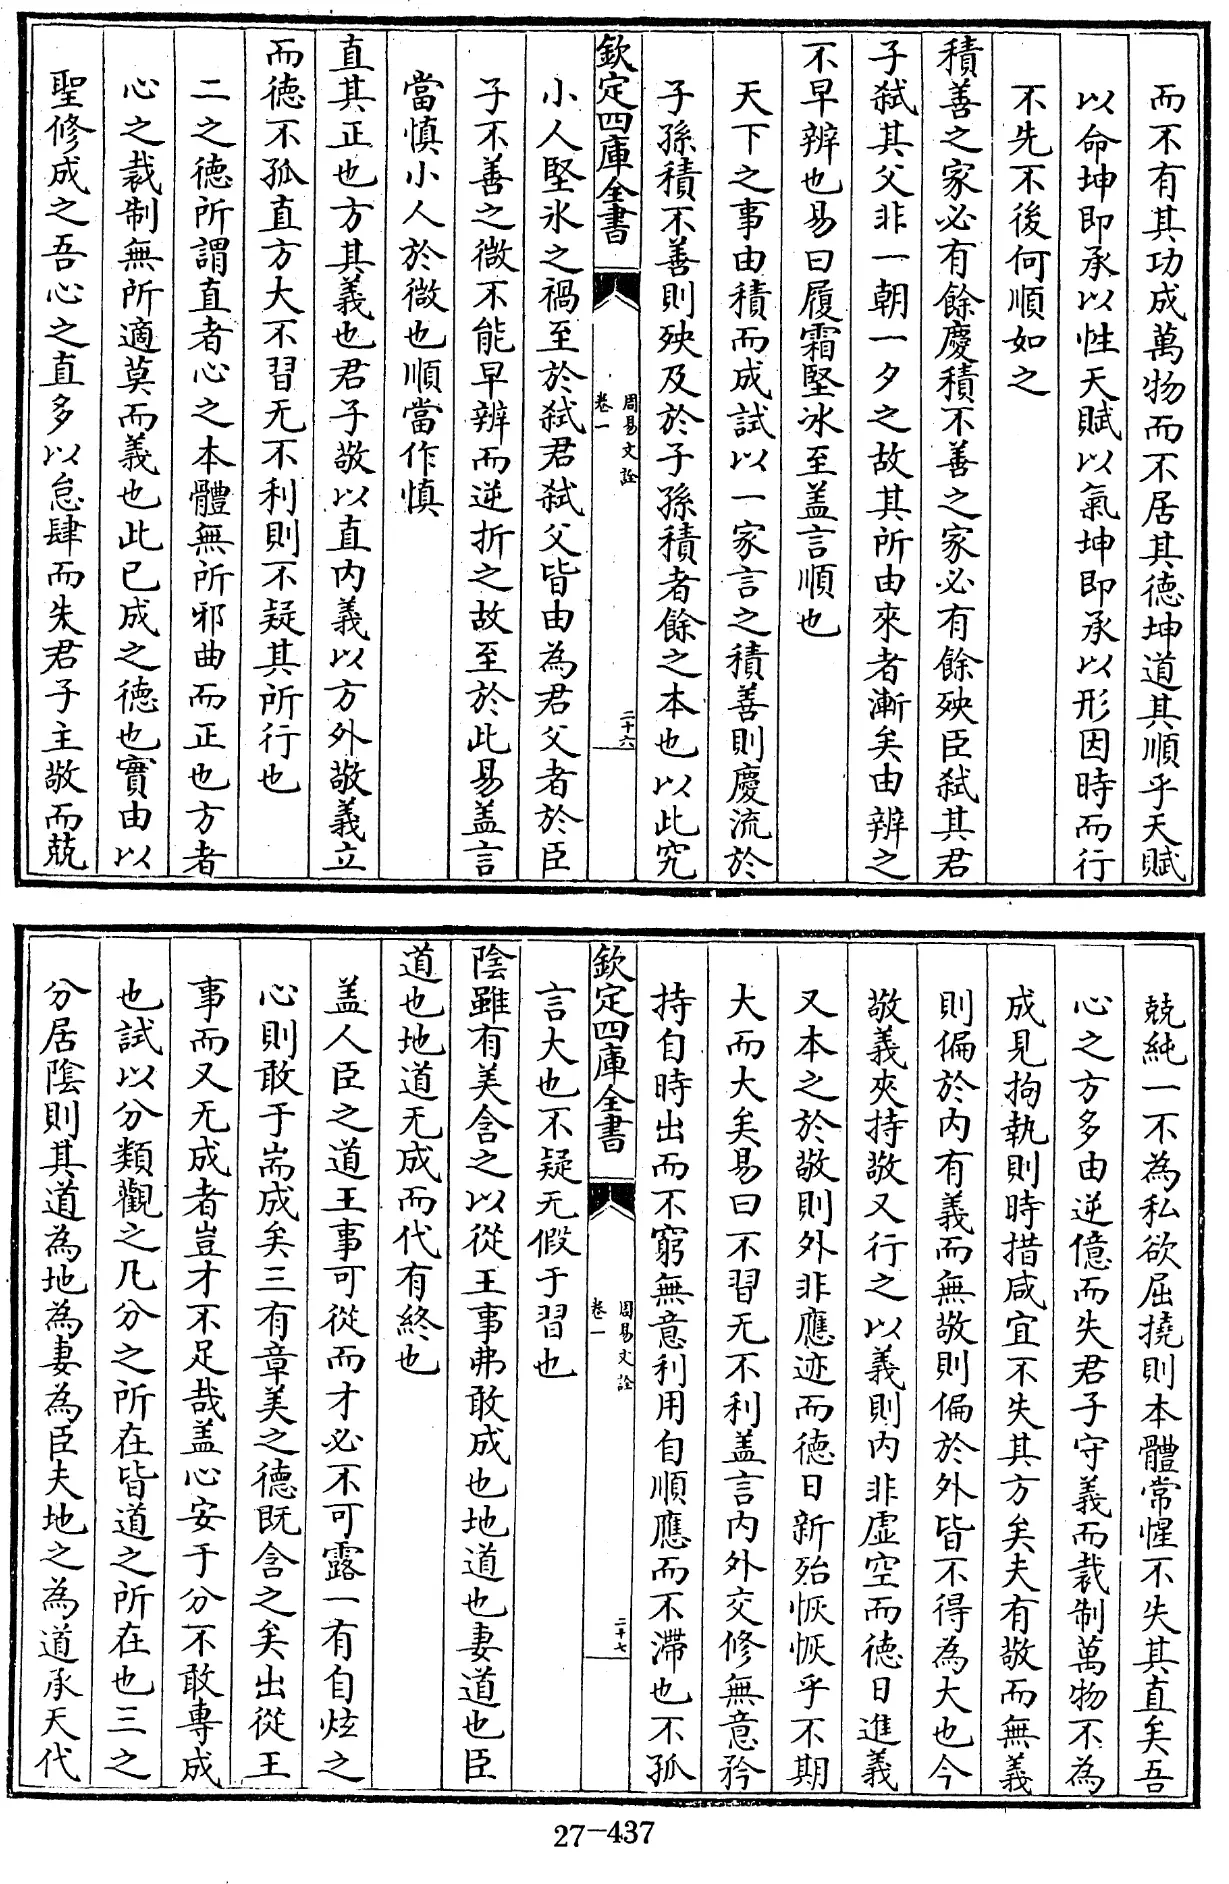 而不有其功成萬物而不居其德坤道其順乎天賦
以命坤即承以性天賦以氣坤即承以形因時而行
不先不後何順如之
積善之家必有餘慶積不善之家必有餘殃臣弑其君
子弑其父非一朝一夕之故其所由來者漸矣由辨之
不早辨也易曰履霜堅冰至蓋言順也
天下之事由積而成試以一家言之積善則慶流於
子孫積不善則殃及於子孫積者餘之本也以此究
欽定四庫全書
周易文詮
卷一
二十六
小人堅氷之禍至於弑君弑父皆由為君父者於臣
子不善之微不能早辨而逆折之故至於此易盖言
當慎小人於微也順當作慎
直其正也方其義也君子敬以直内義以方外敬義立
而德不孤直方大不習无不利則不疑其所行也
二之德所謂直者心之本體無所邪曲而正也方者
心之裁制無所適莫而義也此已成之德也實由以
聖修成之吾心之直多以怠肆而失君子主敬而兢
兢純一不為私欲屈撓則本體常惺不失其直矣吾
心之方多由逆億而失君子守義而裁制萬物不為
成見拘執則時措咸宜不失其方矣夫有敬而無義
則偏於内有義而無敬則偏於外皆不得為大也今
敬義夾持敬又行之以義則内非虚空而德日進義
又本之於敬則外非應迹而德日新殆恢恢乎不期
大而大矣易曰不習无不利盖言内外交修無意矜
持自時出而不窮無意利用自順應而不滯也不孤
欽定四庫全書
周易文詮
卷一
二十七
言大也不疑无假于習也
陰雖有美含之以從王事弗敢成也地道也妻道也臣
道也地道无成而代有終也
盖人臣之道王事可從而才必不可露一有自炫之
心則敢于耑成矣三有章美之德既含之矣出從王
事而又无成者豈才不足哉盖心安于分不敢專成
也試以分類觀之凡分之所在皆道之所在也三之
分居陰則其道為地為妻為臣夫地之為道承天代
27-437